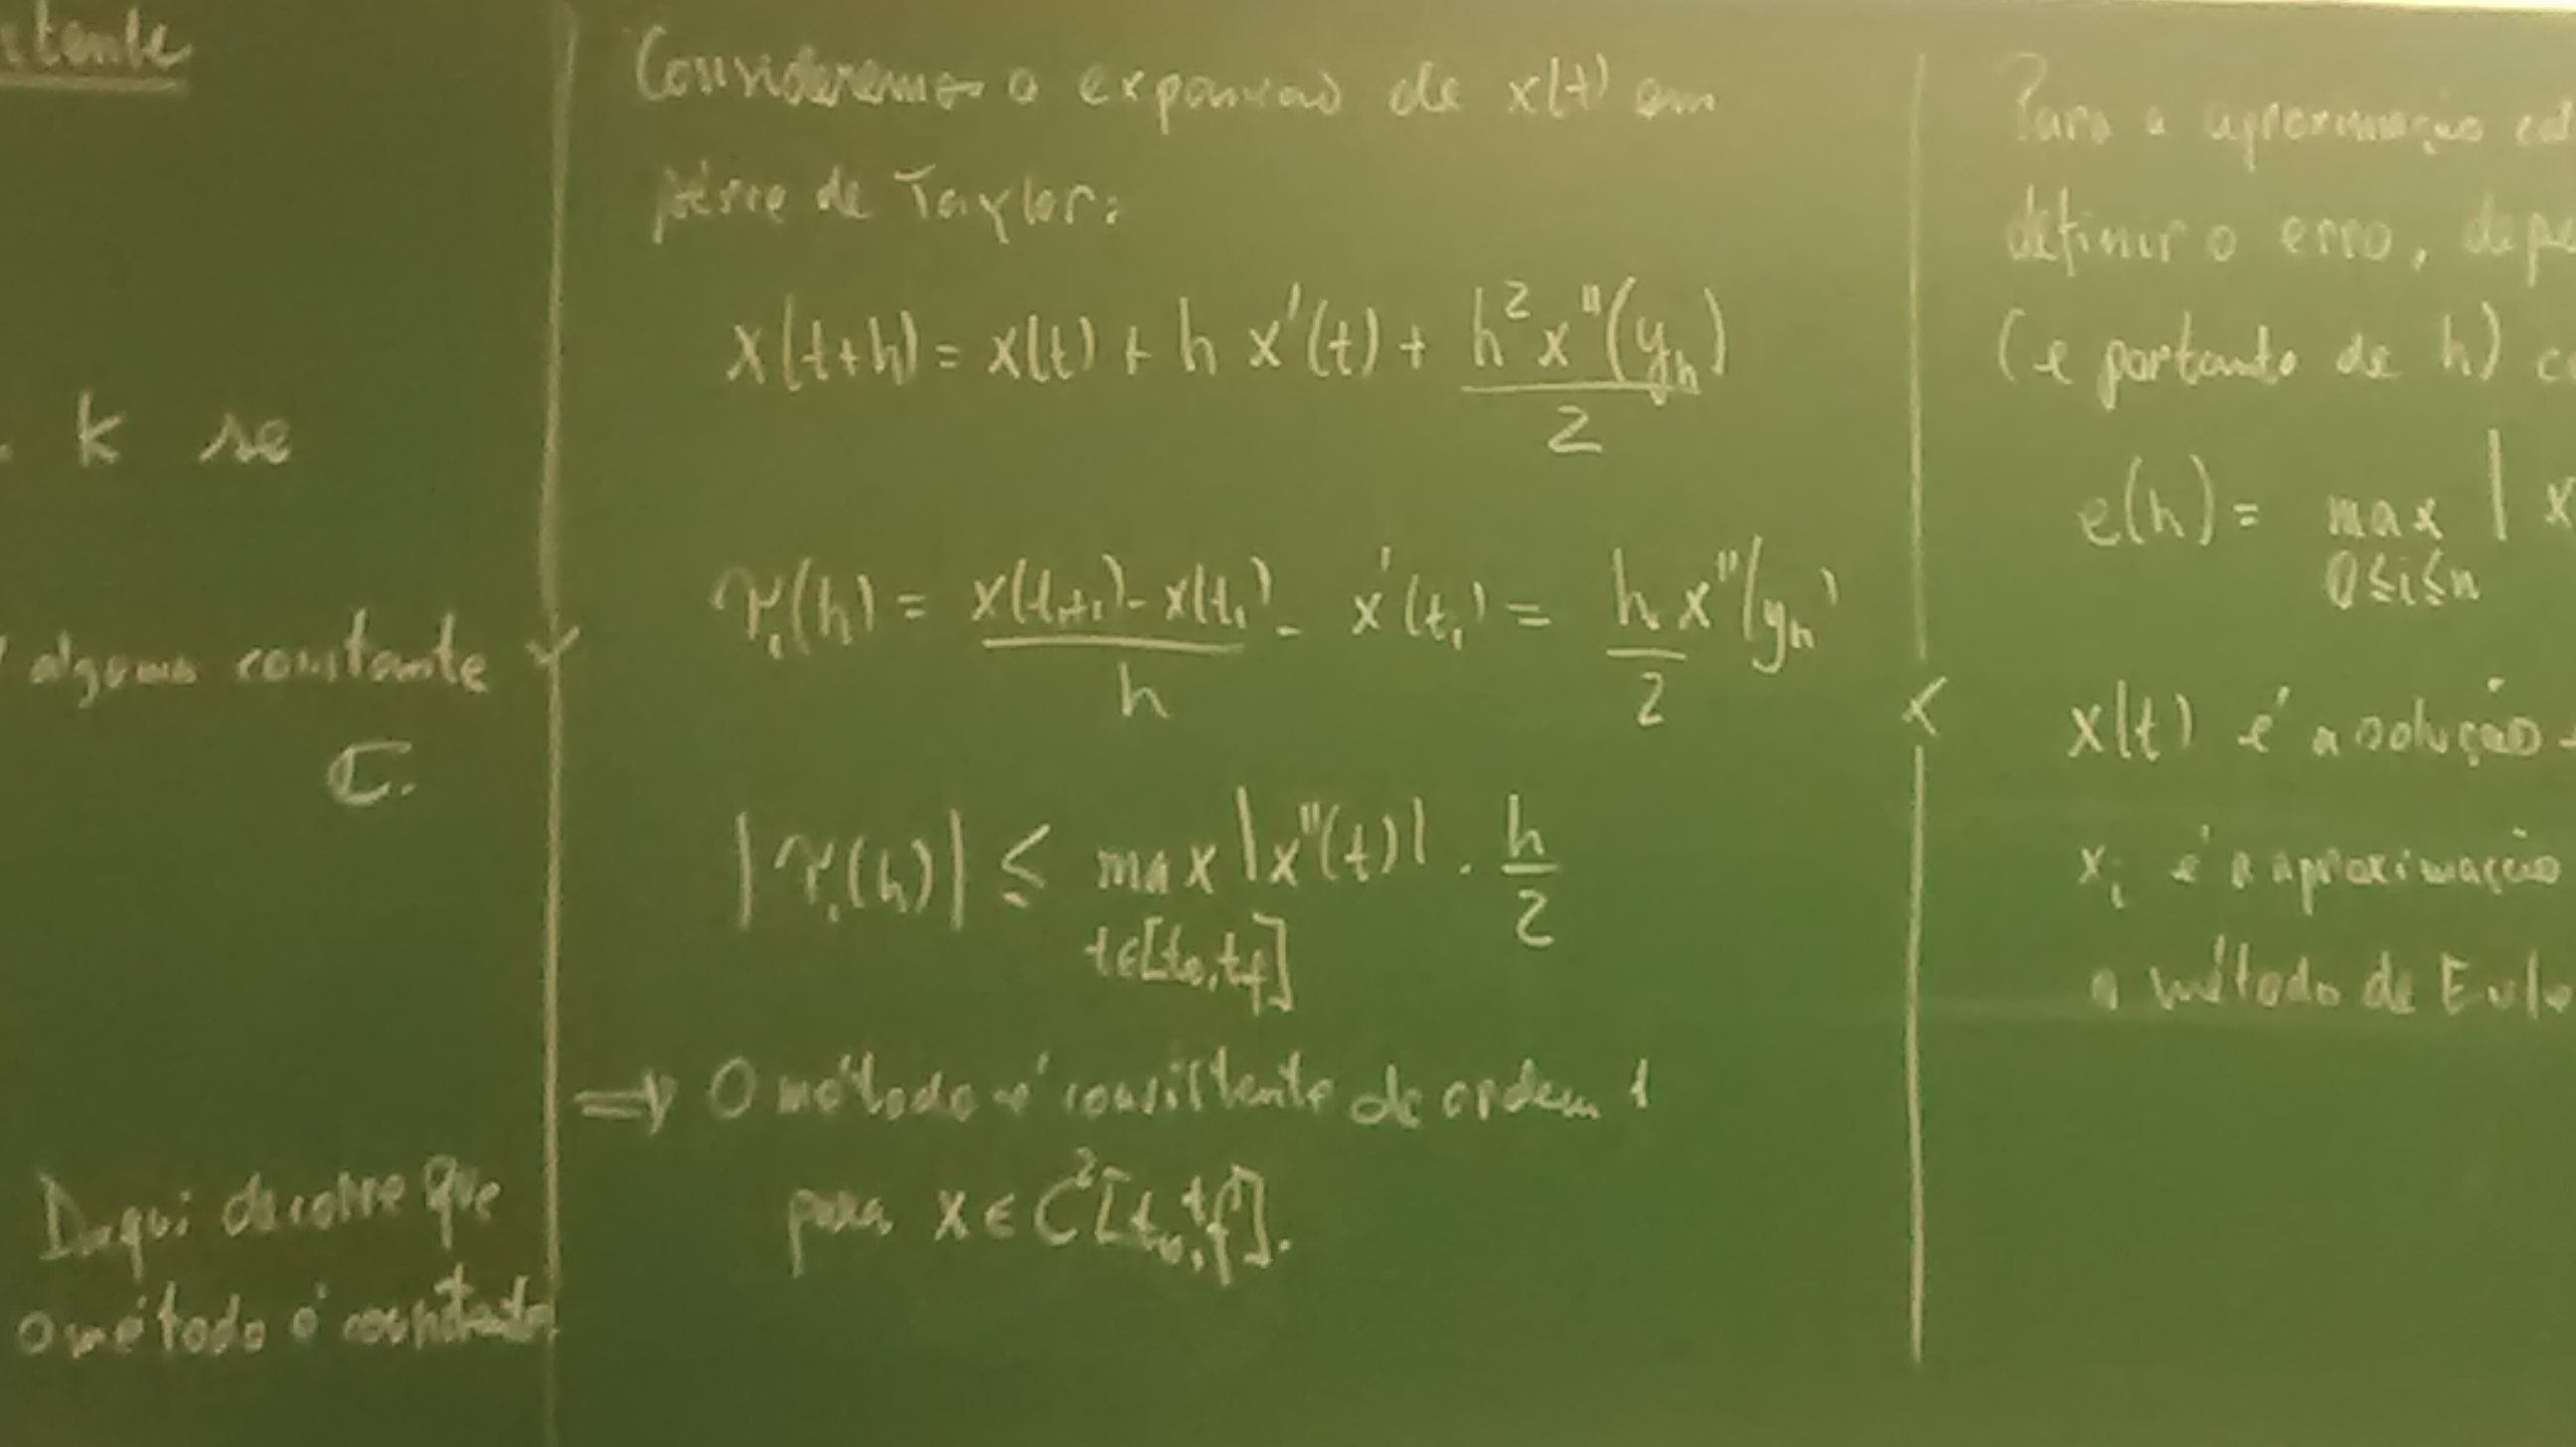 k se
alguma constante
C.
Daqui decorre que
o método é consistente
Consideremos a expansão de x(t) em
série de Taylor:
x(t+h) = x(t) + h x'(t) + h² x''(y_h) / 2
τ_i(h) = (x(t_{i+1}) - x(t_i)) / h - x'(t_i) = h/2 x''(y_h)
|τ_i(h)| ≤ max |x''(t)| . h/2
t∈[t₀,t_f]
⟹ O método é consistente de ordem 1
para x ∈ C²[t₀,t_f].
Para a aproximação
definir o erro, depe
(e portanto de h) c
e(h) = max | x
0≤i≤n
x(t) é a solução
x_i é a aproximação
o método de Eule